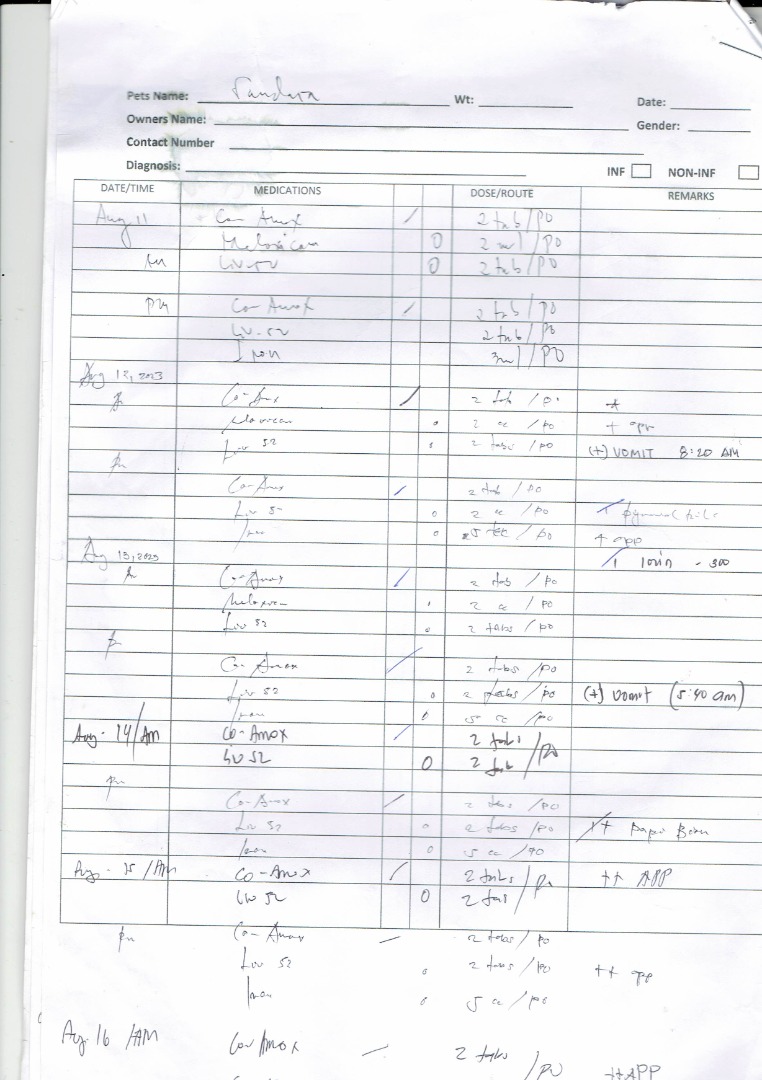 Pets Name: Wt: Date:
Owners Name: Gender:
Contact Number
Diagnosis: INF NON-INF
DATE/TIME MEDICATIONS DOSE/ROUTE REMARKS
Aug 11 Co-Amox / 2 tab/PO
Meloxicam 0 2 ml/PO
AM Liv-52 0 2 tab/PO
PM Co-Amox / 2 tab/PO
Liv-52 2 tab/PO
Iron 3ml/PO
Aug 12, 2023
Co-Amox / 2 tab/po
Meloxicam 0 2 cc/po +
Liv 52 2 tabs/po (+) VOMIT 8:20 AM
pm
Co-Amox / 2 tab/PO
Liv 52 0 2 /po
Iron 0 5 cc/po + app
Aug 13, 2023 - 300
Co-Amox / 2 tab/po
Meloxicam 2 cc/po
Liv 52 0 2 tabs/po
Co-Amox / 2 tabs/po
Liv 52 0 2 tabs/po (+) vomit (5:40 am)
Iron 0 5 cc/po
Aug. 14/AM Co-Amox / 2 tabs/po
Liv 52 0 2 tab
pm
Co-Amox / 2 tabs/po
Liv 52 0 2 tabs/po
Iron 0 5 cc/po
Aug. 15/AM Co-Amox / 2 tabs/po ++ APP
Liv 52 0 2 tabs
pm Co-Amox / 2 tabs/po
Liv 52 0 2 tabs/po ++ app
Iron 0 5 cc/po
Aug. 16/AM Co-Amox / 2 tabs/PO ++APP